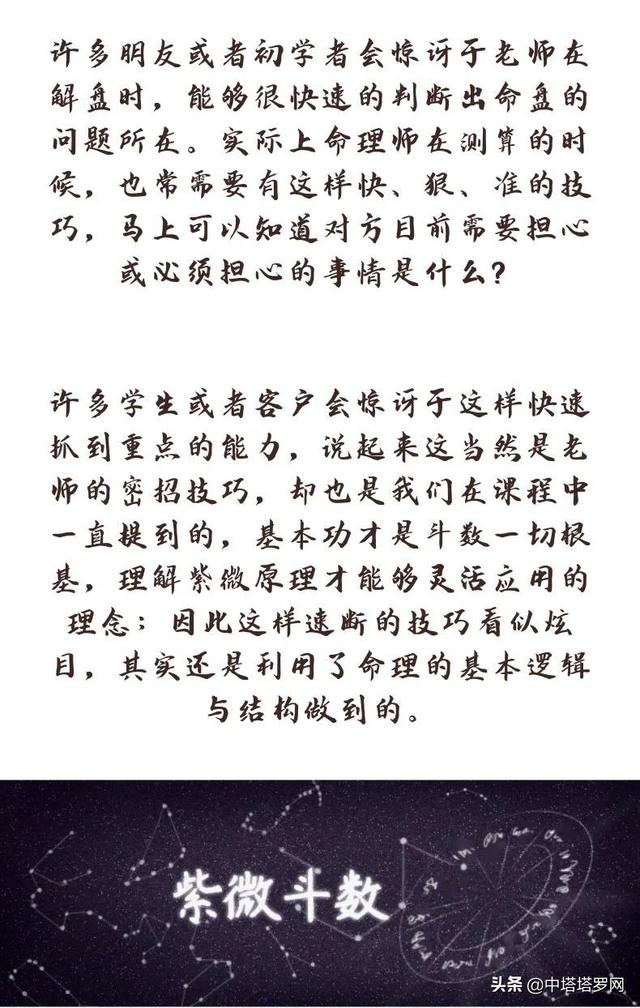 许多朋友或者初学者会惊讶于老师在
解盘时，能够很快速的判断出命盘的
问题所在。实际上命理师在测算的时
候，也常需要有这样快、狠、准的技
巧，马上可以知道对方目前需要担心
或必须担心的事情是什么？
许多学生或者客户会惊讶于这样快速
抓到重点的能力，说起来这当然是老
师的密招技巧，却也是我们在课程中
一直提到的，基本功才是斗数一切根
基，理解紫微原理才能够灵活应用的
理念；因此这样速断的技巧看似炫
目，其实还是利用了命理的基本逻辑
与结构做到的。
紫微斗数
头条@中塔塔罗网